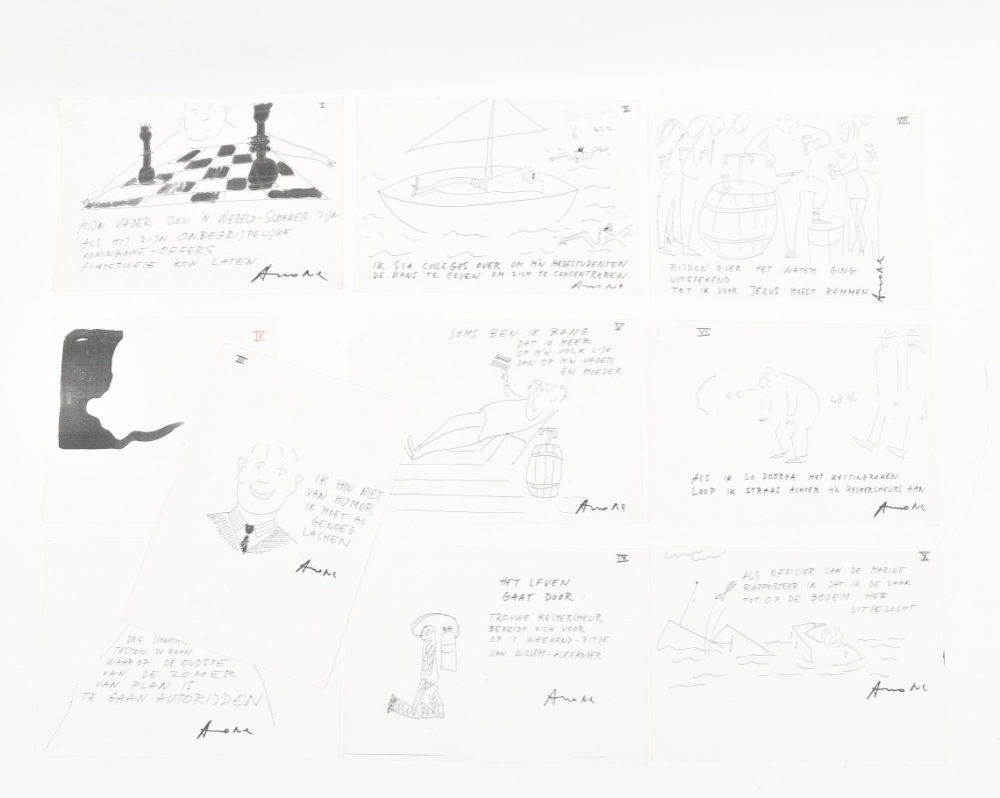 I
MIJN VADER ZOU 'N WERELD-SCHAKER ZIJN
ALS HIJ ZIJN ONBEGRIJPELIJKE
KONINGINNE-OFFERS
ACHTERWEGE KON LATEN
II
40%
IK SLA COLLEGES OVER OM M'N MEDESTUDENTEN
DE KANS TE GEVEN OM ZICH TE CONCENTREREN
VIII
RIJDEN OVER HET WATER GING
UITSTEKEND
TOT IK VOOR JEZUS MOEST REMMEN
IV
III
IK HOU NIET
VAN HUMOR
IK MOET AL
GENOEG
LACHEN
V
SOMS BEN IK BANG
DAT IK MEER
OP M'N VOLK LIJK
DAN OP M'N VADER
EN MOEDER
VI
40%
ALS IK ZO DOORGA MET KETTINGROKEN
LOOP IK STRAKS ACHTER M'N RECHERCHEURS AAN
DRIE
TESTEN DE BAAN
WAAROP DE OUDSTE
VAN DE ZOMER
VAN PLAN IS
TE GAAN AUTORIJDEN
IX
HET LEVEN
GAAT DOOR:
TROUWE RECHERCHEUR
BEREIDT ZICH VOOR
OP 'T WEEKEND-RITJE
VAN WILLEM-ALEXANDER
X
ALS OFFICIER VAN DE MARINE
RAPPORTEER IK DAT IK DE ZAAK
TOT OP DE BODEM HEB
UITGEZOCHT